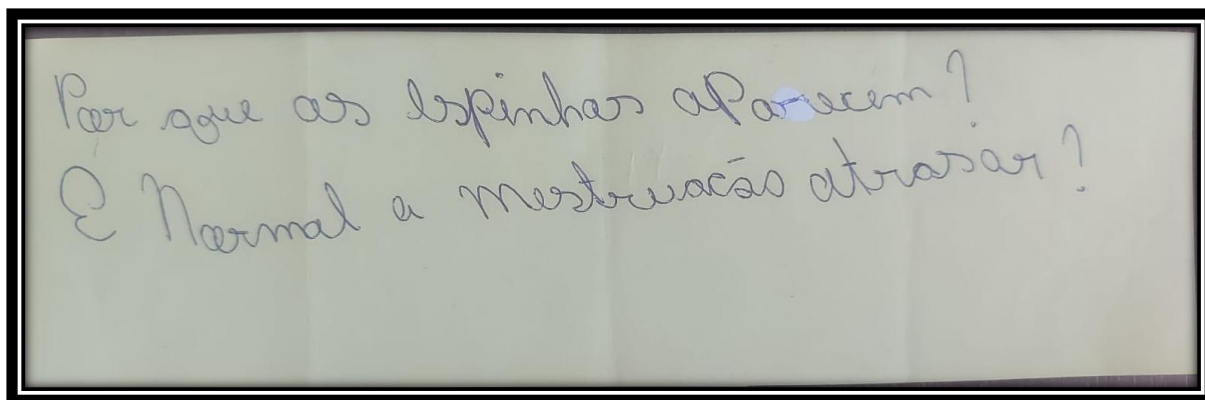 Por que as espinhas aParecem?
É Normal a mestruacão atrasar?